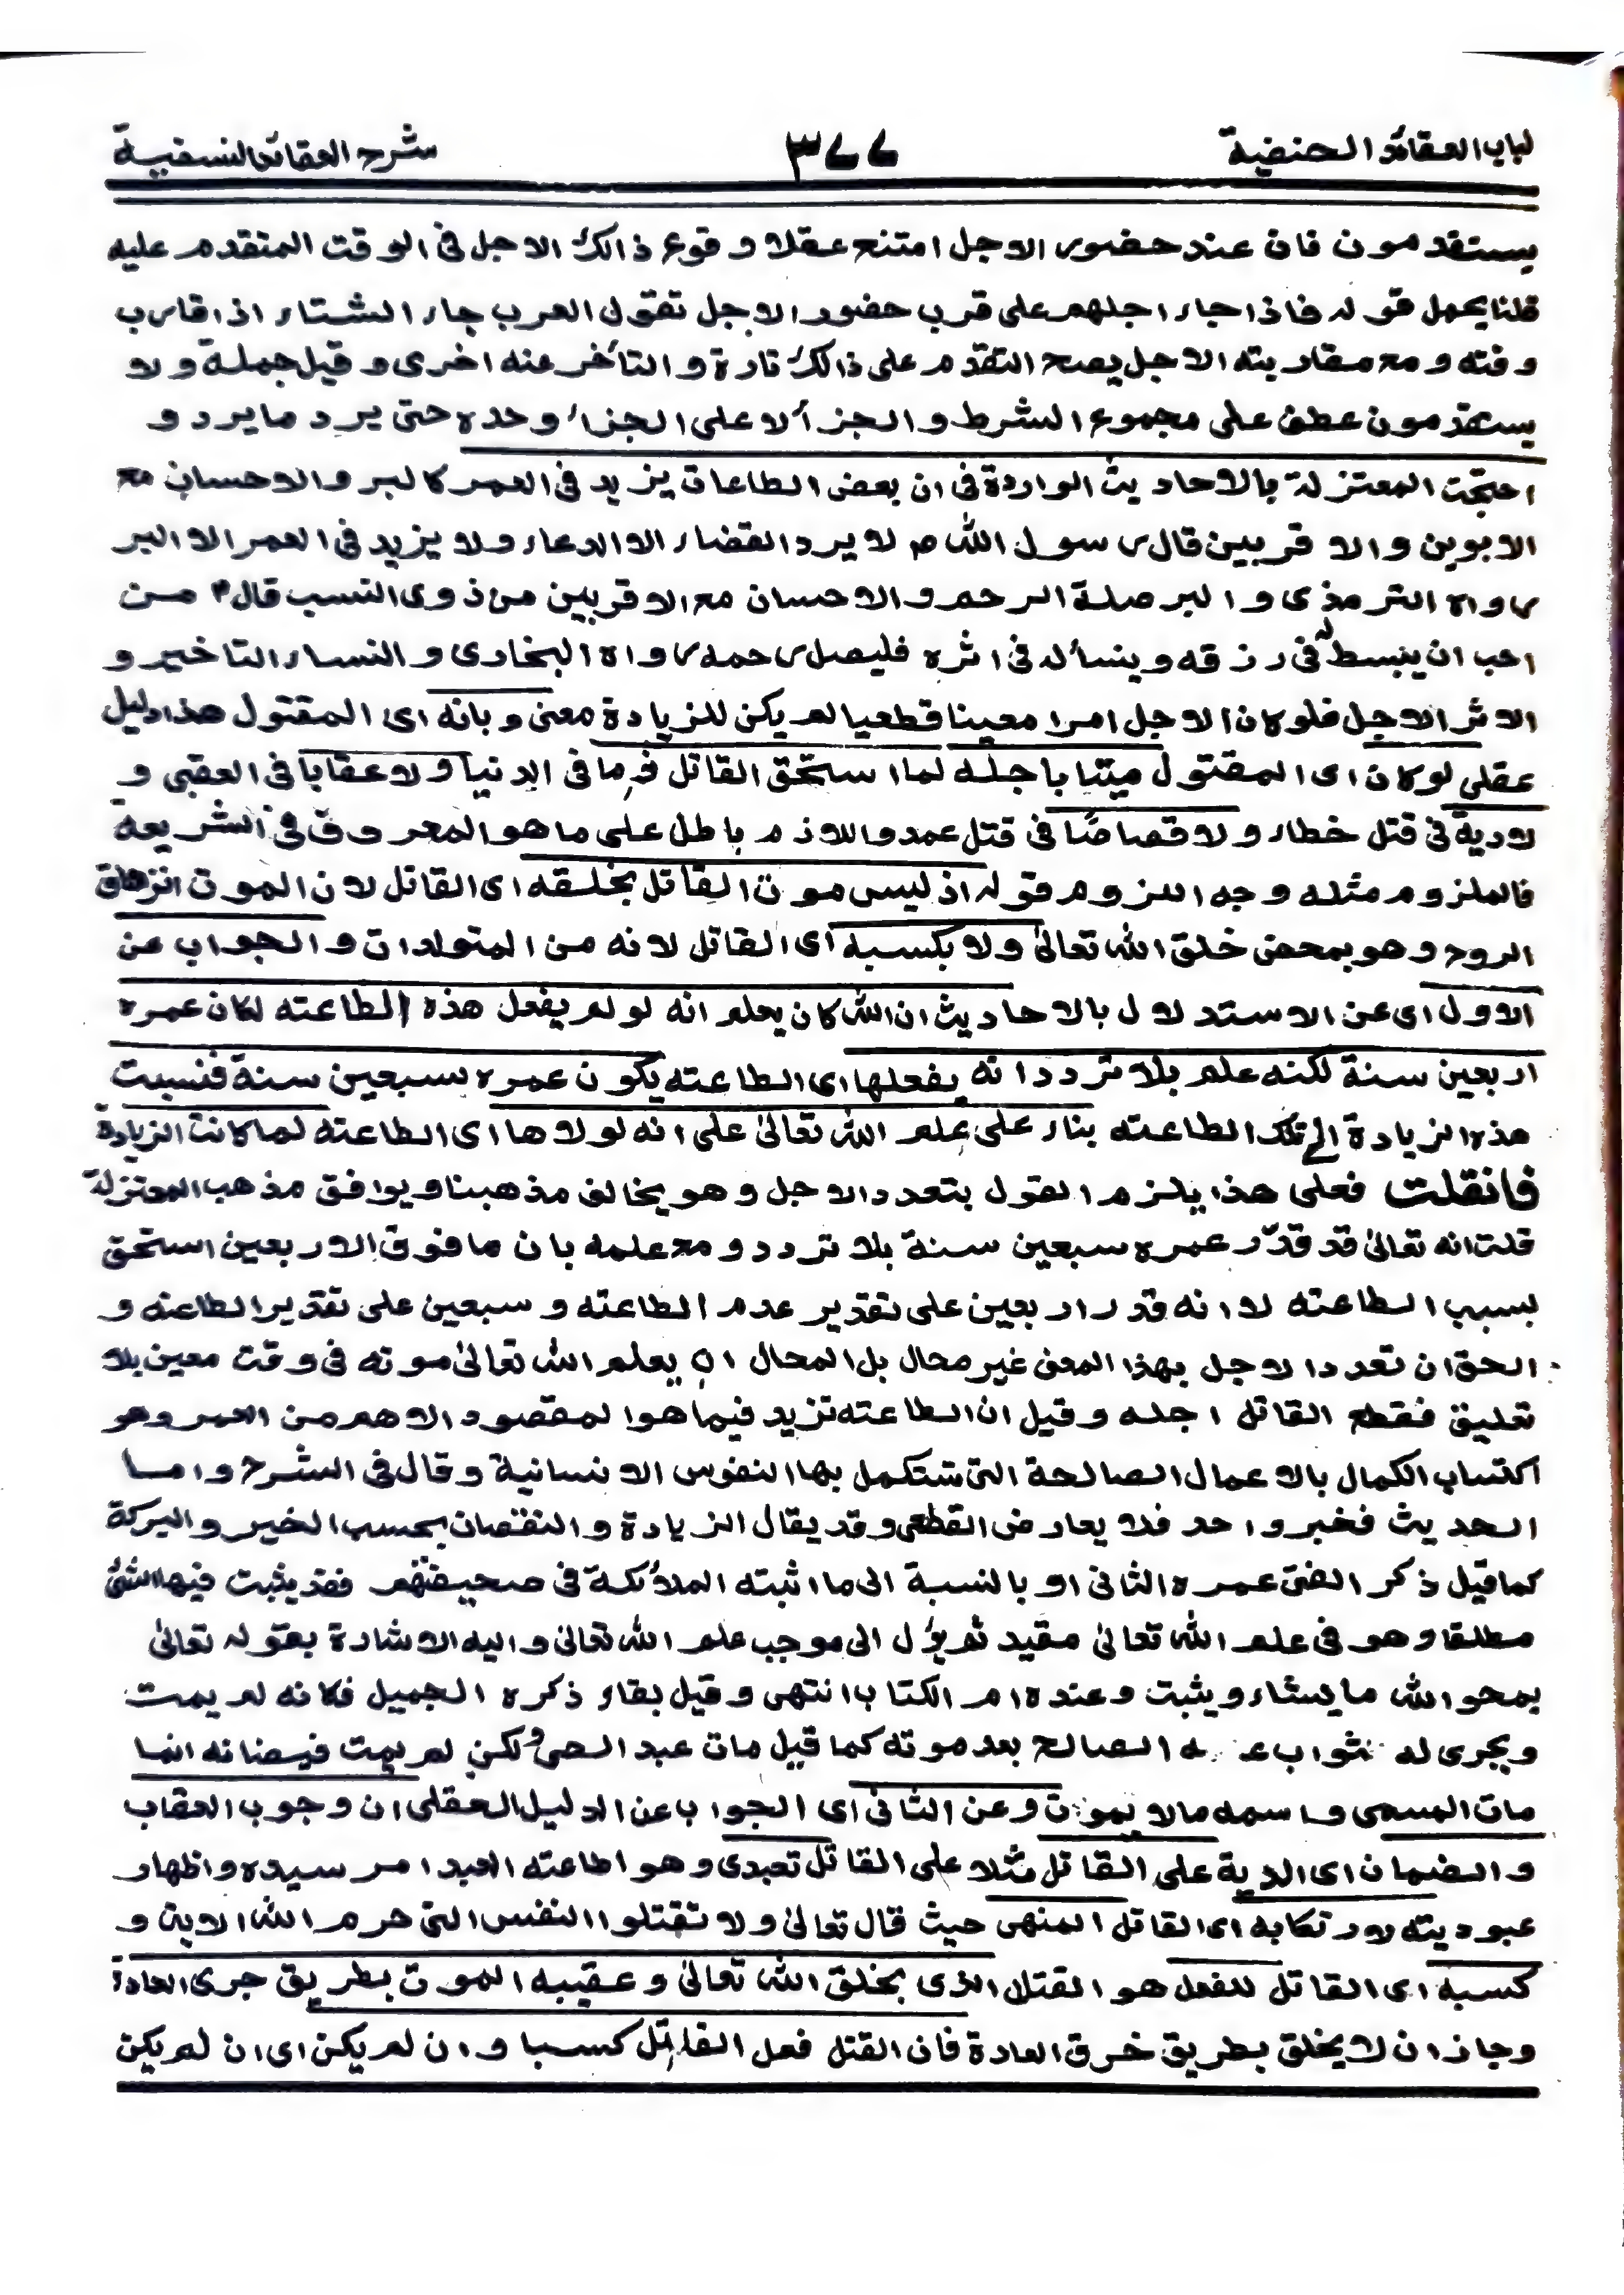 لباب العقائد الحنفية ٣٧٧ شرح العقائد النسفية
يستقدمون فان عند حضور الاجل امتنع عقلا وقوع ذالك الاجل فى الوقت المتقدم عليه
قلنا يحمل قوله فاذا جاء اجلهم على قرب حضور الاجل تقول العرب جاء الشتاء اذا قارب
وقته ومع مقاربته الاجل يصح التقدم على ذالك تارة والتأخر عنه اخرى وقيل جملة ولا
يستقدمون عطف على مجموع الشرط والجزأ لا على الجزاء وحده حتى يرد ما يرد و
احتجت المعتزلة بالاحاديث الواردة فى ان بعض الطاعات يزيد فى العمر كالبر والاحسان مع
الابوين والاقربين قال رسول الله ص لا يرد القضاء الا الدعاء ولا يزيد فى العمر الا البر
رواه الترمذى والبر صلة الرحم والاحسان مع الاقربين من ذوى النسب قال م من
احب ان ينبسط له فى رزقه وينسأ له فى اثره فليصل رحمه رواه البخارى والنساء التاخير و
الاثر الاجل فلو كان الاجل امرا معينا قطعيا لم يكن للزيادة معنى وبانه اى المقتول هذا دليل
عقلى لو كان اى المقتول ميتا باجله لما استحق القاتل ذما فى الدنيا ولا عقابا فى العقبى و
لا دية فى قتل خطاء ولا قصاصًا فى قتل عمد واللازم باطل على ما هو المعروف فى الشريعة
فالملزوم مثله وجه اللزوم قوله اذ ليس موت القاتل بخلقه اى القاتل لان الموت انزهاق
الروح وهو بمحض خلق الله تعالىٰ ولا بكسبه اى القاتل لانه من المتولدات والجواب عن
الاول اى عن الاستدلال بالاحاديث ان الله كان يعلم انه لو لم يفعل هذه الطاعته لكان عمره
اربعين سنة لكنه علم بلا تردد انه يفعلها اى الطاعته يكون عمره سبعين سنة فنسبت
هذه الزيادة الى تلك الطاعته بناء على علم الله تعالىٰ على انه لولاها اى الطاعته لما كانت الزيادة
فانقلت فعلى هذا يلزم القول بتعدد الاجل وهو يخالف مذهبنا ويوافق مذهب المعتزلة
قلت انه تعالىٰ قد قدّر عمره سبعين سنة بلا تردد ومع علمه بان ما فوق الاربعين استحق
بسبب الطاعته لا انه قدر اربعين على تقدير عدم الطاعته وسبعين على تقدير الطاعته و
الحق ان تعدد الاجل بهذا المعنى غير محال بل المحال ان يعلم الله تعالىٰ موته فى وقت معين بلا
تعليق فقطع القاتل اجله وقيل ان الطاعته تزيد فيما هو المقصود الاهم من العمر وهو
اكتساب الكمال بالاعمال الصالحة التى تستكمل بها النفوس الانسانية وقال فى الشرح واما
الحديث فخبر واحد فلا يعارض القطعى وقد يقال الزيادة والنقصان بحسب الخير والبركة
كما قيل ذكر الفتى عمره الثانى او بالنسبة الى ما اثبته الملائكة فى صحيفتهم فقد يثبت فيها الشئ
مطلقا وهو فى علم الله تعالىٰ مقيد ثم يؤل الى موجب علم الله تعالىٰ واليه الاشارة بقوله تعالىٰ
يمحو الله ما يشاء ويثبت وعنده ام الكتاب انتهى وقيل بقاء ذكره الجميل فكانه لم يمت
ويجرى له ثواب الصالح بعد موته كما قيل مات عبد الحى ولكن لم يمت فيضانه انما
مات المسمى واسمه مالا يموت وعن الثانى اى الجواب عن الدليل العقلى ان وجوب العقاب
والضمان اى الدية على القاتل مثلا على القاتل تعبدى وهو اطاعته العبد امر سيده واظهار
عبوديته لارتكابه اى القاتل المنهى حيث قال تعالىٰ ولا تقتلوا النفس التى حرم الله الاية و
كسبه اى القاتل للفعل هو القتل الذى يخلق الله تعالىٰ وعقيبه الموت بطريق جرى العادة
وجاز ان لا يخلق بطريق خرق العادة فان القتل فعل القاتل كسبا وان لم يكن اى ان لم يكن